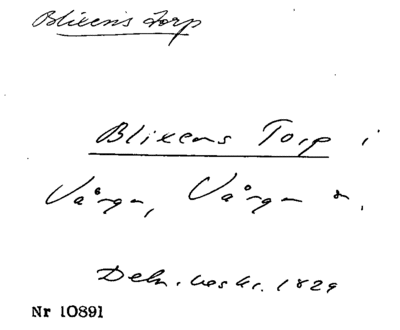 Blixens Torp
Blixens Torp i
Vånga, Vånga sn.
Deln. beskr. 1829
Nr 10891